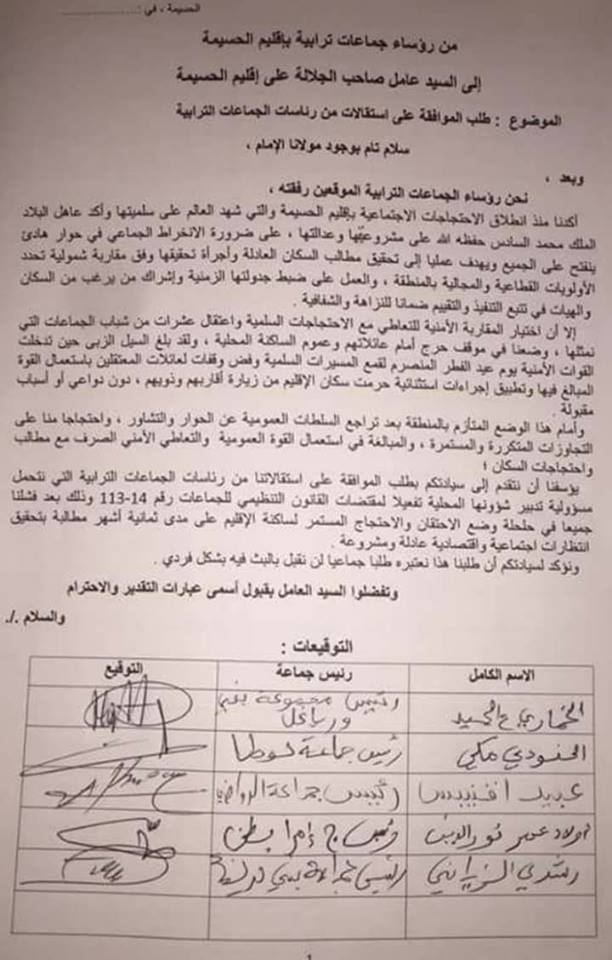 الحسيمة ، في :................
من رؤساء جماعات ترابية بإقليم الحسيمة
إلى السيد عامل صاحب الجلالة على إقليم الحسيمة
الموضوع : طلب الموافقة على استقالات من رئاسات الجماعات الترابية
سلام تام بوجود مولانا الإمام ،
وبعد ،
نحن رؤساء الجماعات الترابية الموقعين رفقته ،
أكدنا منذ انطلاق الاحتجاجات الاجتماعية بإقليم الحسيمة والتي شهد العالم على سلميتها وأكد عاهل البلاد
الملك محمد السادس حفظه الله على مشروعيتها وعدالتها ، على ضرورة الانخراط الجماعي في حوار هادئ
ينفتح على الجميع ويهدف عمليا إلى تحقيق مطالب السكان العادلة وأجرأة تحقيقها وفق مقاربة شمولية تحدد
الأولويات القطاعية والمجالية بالمنطقة ، والعمل على ضبط جدولتها الزمنية وإشراك من يرغب من السكان
والهيات في تتبع التنفيذ والتقييم ضمانا للنزاهة والشفافية .
إلا أن اختيار المقاربة الأمنية للتعاطي مع الاحتجاجات السلمية واعتقال عشرات من شباب الجماعات التي
نمثلها ، وضعنا في موقف حرج أمام عائلاتهم وعموم الساكنة المحلية ، ولقد بلغ السيل الزبى حين تدخلت
القوات الأمنية يوم عيد الفطر المنصرم لقمع المسيرات السلمية وفض وقفات لعائلات المعتقلين باستعمال القوة
المبالغ فيها وتطبيق إجراءات استثنائية حرمت سكان الإقليم من زيارة أقاربهم وذويهم ، دون دواعي أو أسباب
مقبولة .
وأمام هذا الوضع المتأزم بالمنطقة بعد تراجع السلطات العمومية عن الحوار والتشاور ، واحتجاجا منا على
التجاوزات المتكررة والمستمرة ، والمبالغة في استعمال القوة العمومية والتعاطي الأمني الصرف مع مطالب
واحتجاجات السكان ؛
يؤسفنا أن نتقدم إلى سيادتكم بطلب الموافقة على استقالاتنا من رئاسات الجماعات الترابية التي نتحمل
مسؤولية تدبير شؤونها المحلية تفعيلا لمقتضات القانون التنظيمي للجماعات رقم 14-113 وذلك بعد فشلنا
جميعا في حلحلة وضع الاحتقان والاحتجاج المستمر لساكنة الإقليم على مدى ثمانية أشهر مطالبة بتحقيق
انتظارات اجتماعية واقتصادية عادلة ومشروعة .
ونؤكد لسيادتكم أن طلبنا هذا نعتبره طلبا جماعيا لن نقبل بالبث فيه بشكل فردي .
وتفضلوا السيد العامل بقبول أسمى عبارات التقدير والاحترام
والسلام ./.
التوقيعات :
الاسم الكامل رئيس جماعة التوقيع
الخماري ع الحميد رئيس مجموعة بني ورياغل
الحنودي مكي رئيس جماعة لوطا
عبيد رئيس جماعة الرواضي
أولاد عمر نور الدين رئيس ج إمرابطن
رشدي رئيس جماعة بني
1